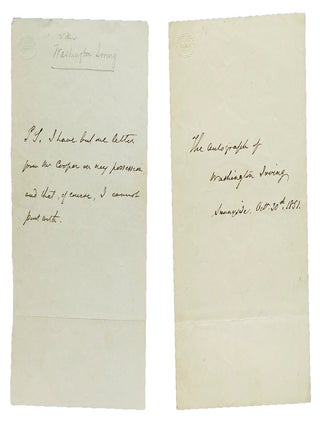 Washington Irving
P.S. I have but one letter
from Mr Cooper in my possession
and that, of course, I cannot
part with.
The autograph of
Washington Irving
Sunnyside, Oct. 30th, 1851.